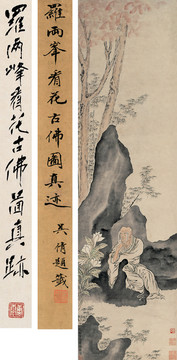 羅兩峯看花古佛圖真迹
吴倩題籤
羅兩峰看花古佛圖真跡